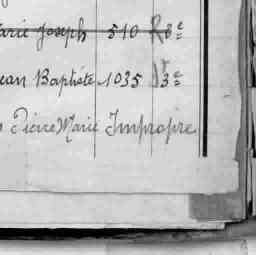 arie Joseph 510 R 8e
ean Baptiste 1035 3e
Pierre Marie Impropire